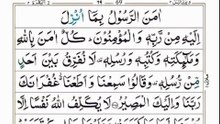 اٰمَنَ الرَّسُوْلُ بِمَاۤ اُنْزِلَ
اِلَيْهِ مِنْ رَّبِّهٖ وَ الْمُؤْمِنُوْنَ ؕ كُلٌّ اٰمَنَ بِاللّٰهِ
وَ مَلٰٓئِكَتِهٖ وَ كُتُبِهٖ وَ رُسُلِهٖ ۫ لَا نُفَرِّقُ بَيْنَ اَحَدٍ
مِّنْ رُّسُلِهٖ ۫ وَ قَالُوْا سَمِعْنَا وَ اَطَعْنَا ٭ۗ غُفْرَانَكَ
رَبَّنَا وَ اِلَيْكَ الْمَصِيْرُ لَا يُكَلِّفُ اللّٰهُ نَفْسًا اِلَّا